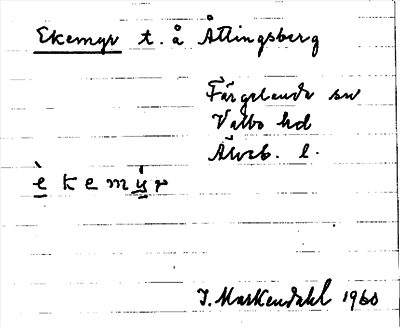 Ekemyr t. å Åttingsberg
Färgelanda sn
Valbo hd
Älvsb. l.
è k e m y̍ r
I. Markendahl 1960